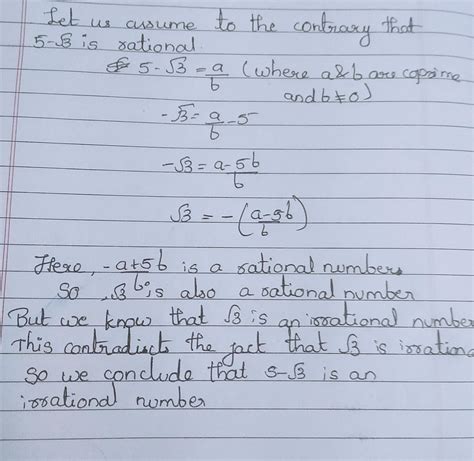 Let us assume to the contrary that
5-√3 is rational.
5-√3 = a/b (where a & b are coprime
and b ≠ 0)
-√3 = a/b - 5
-√3 = a-5b/b
√3 = -(a-5b/b)
Here, -a+5b/b is a rational numbers
So, √3 is also a rational number
But we know that √3 is an irrational number
This contradicts the fact that √3 is irration
So we conclude that 5-√3 is an
irrational number